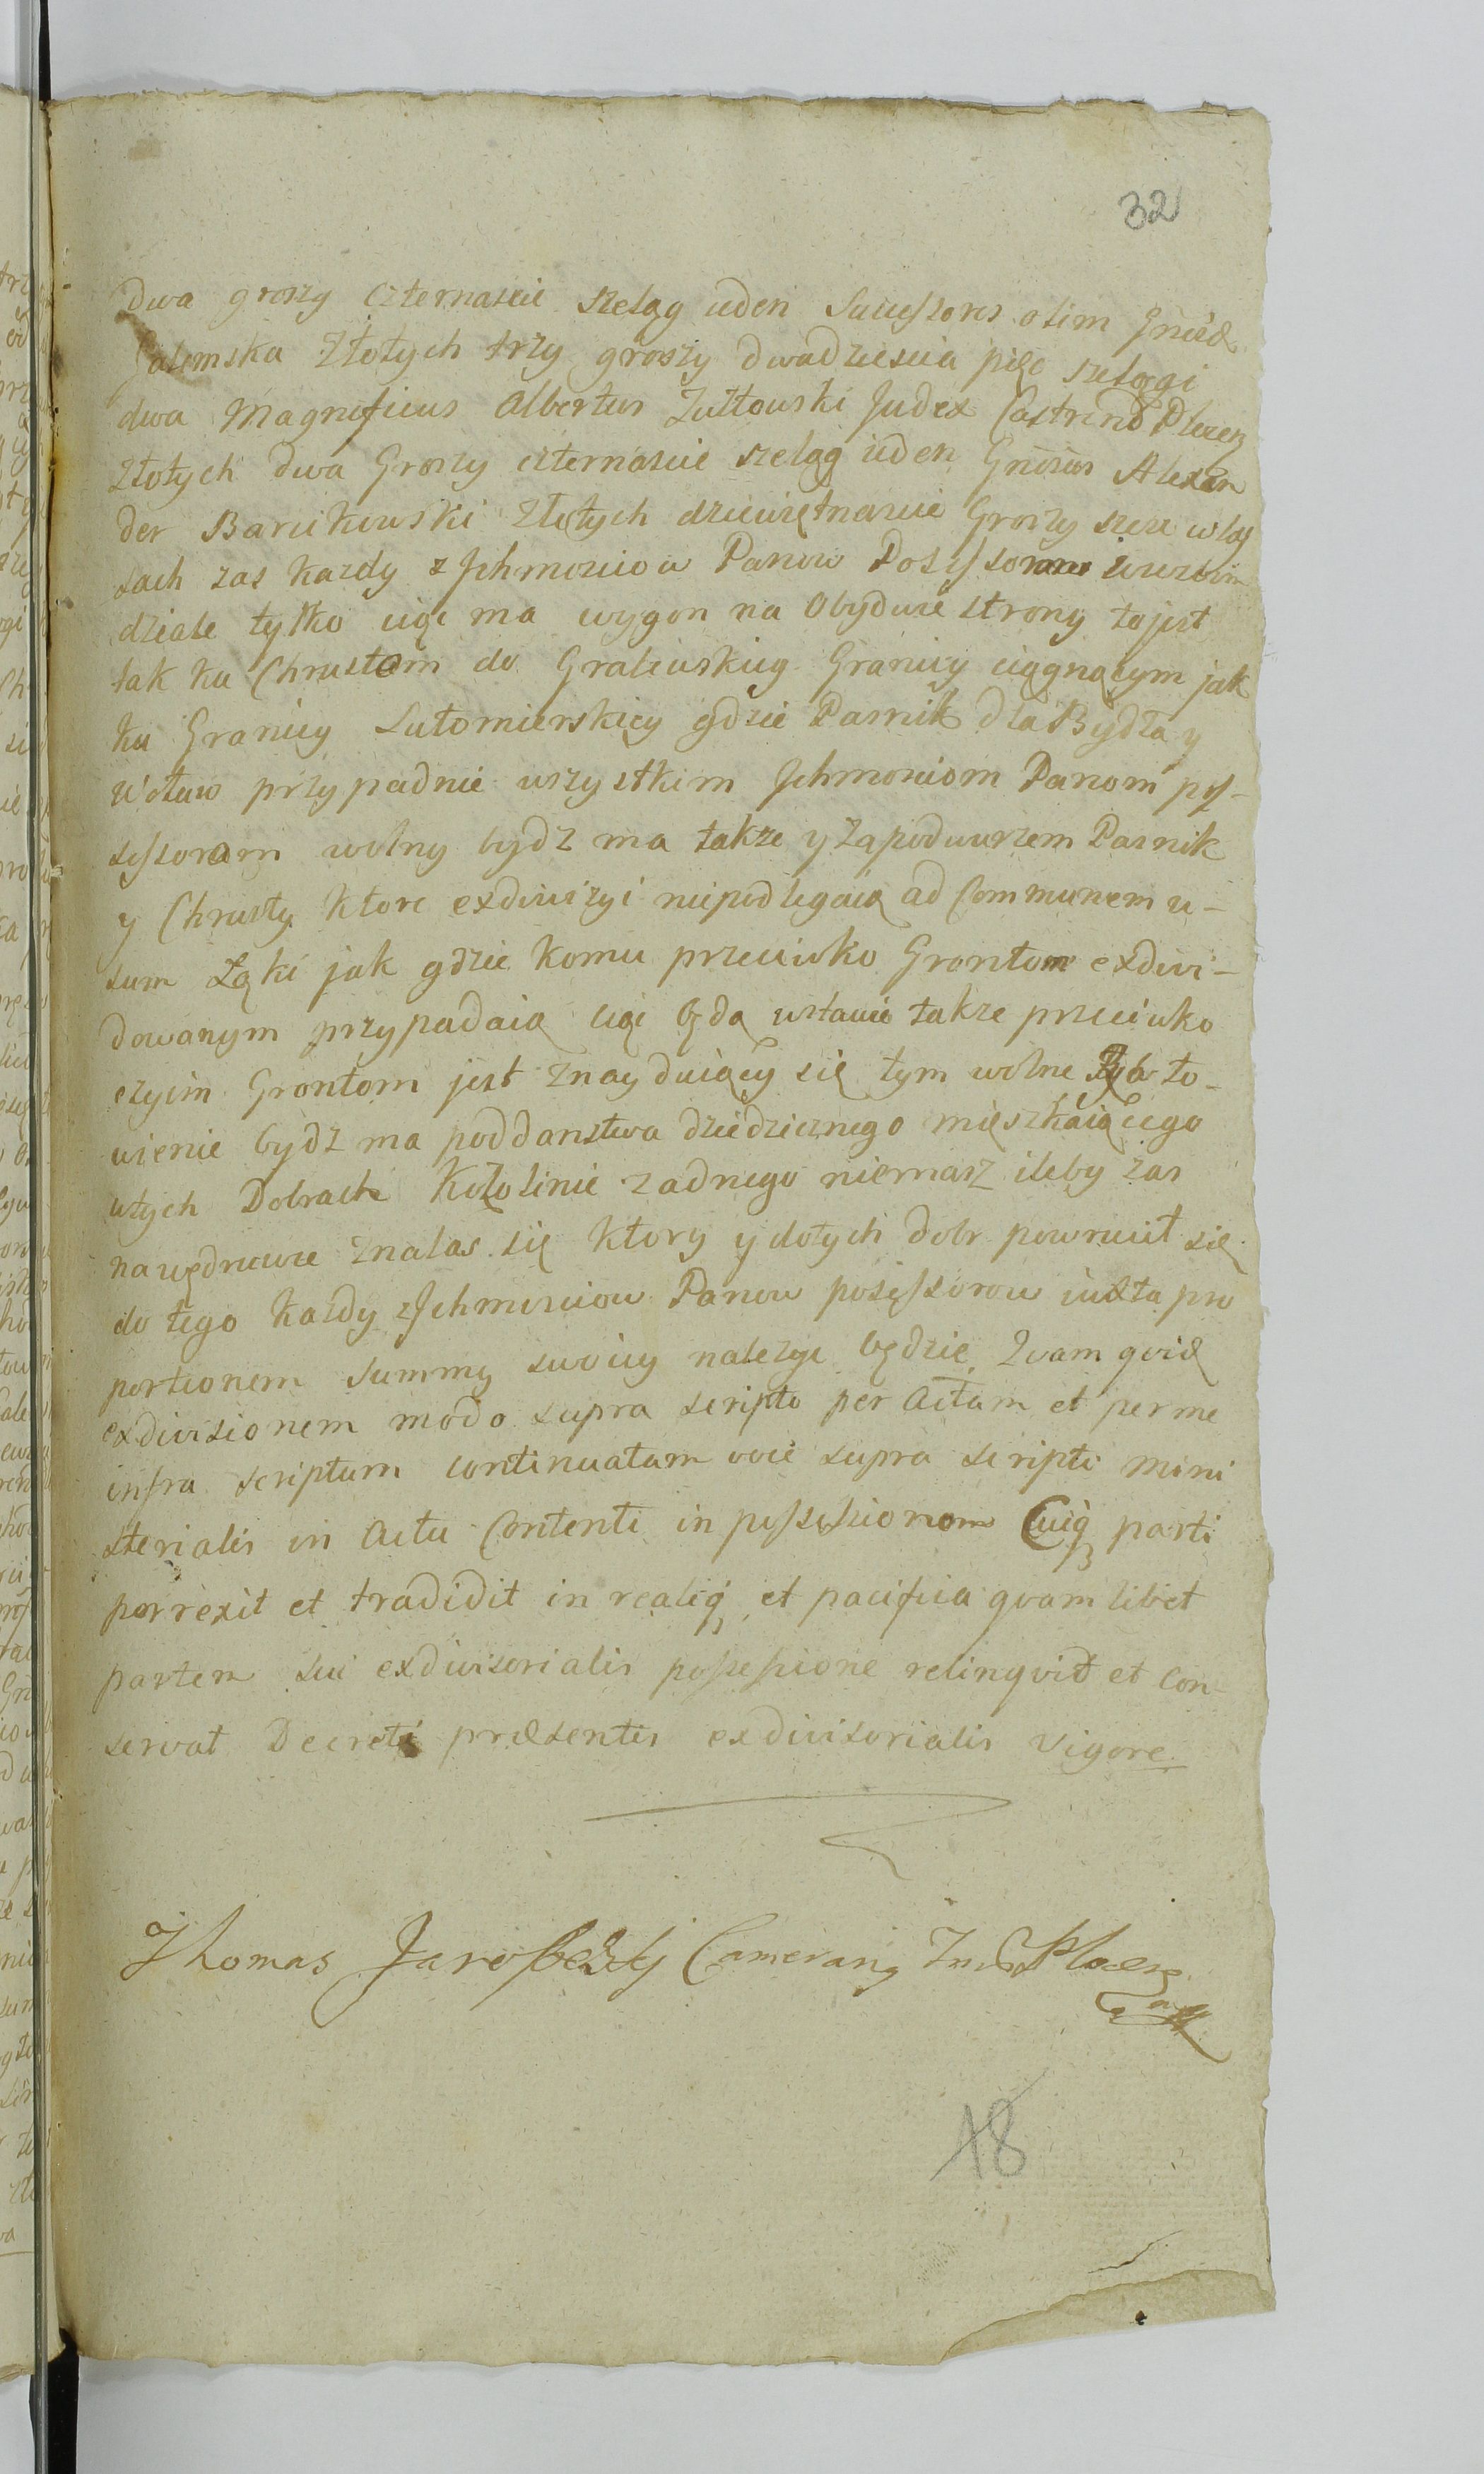 32
dwa groszy czternascie szeląg ieden Successores olim Gnosæ
Zalemska Złotych trzy groszy dwadziescia pięc szelągi
dwa Magnificus Albertus Zułtowski Judex Castren Płocen
złotych dwa Groszy czternascie szeląg ieden Gnosus Alexan
der Barcikowski Złotych dziewiętnascie Groszy szesc wlas
sach zas kazdy z Jchmosciow Panow Possessorow wswoim
dziale tylko ciąc ma wygon na obydwie strony tojest
tak ku Chrustom do Gralewskiey Granicy ciągnącym jak
ku Granicy Lutomierskiey gdzie Pasnik dla Bydła y
Wołow przypadnie wszystkim Jchmosciom Panom pos-
sessorom wolny bydz ma takze y zapodwurzem Pasnik
y Chrusty ktore exdiwizyi niepodlegaią ad Communem u-
sum Łąki jak gdzie komu przeciwko Grontom exdiwi-
dowanym przypadaią ciąc będą wstawie takze przeciwko
czyim Grontom jest znayduiący się tym wolne Ryb ło-
wienie bydz ma poddanstwa dziedzicznego mieszkaiącego
wtych Dobrach Kozolinie zadnego niemasz ileby zas
nawędrowce znalas się ktory y dotych dobr powrucił się
do tego kazdy zJchmosciow Panow possessorow iuxta pro
portionem summy swoiey nalezyc będzie Quam quid
exdivisionem modo supra scripto per Actum et perme
infra scriptum continuatam voce supra scripti mini
sterialis in Actu Contenti in possessionem Cuiq parti
porrexit et tradidit in realiq et pacifica quam libet
partem sui exdivisorialis possessione relinqvit et con-
servat Decreti præsentis exdivisorialis vigore.
Thomas Jarosseski Camerarig
18